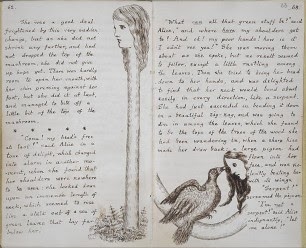 62.
She was a good deal
frightened by this very sudden
change, but as she did not
shrink any further, and had
not dropped the top of the
mushroom, she did not give
up hope yet. There was hardly
room to open her mouth, with
her chin pressing against her
foot, but she did it at last,
and managed to bite off a
little bit of the top of the
mushroom.
* * * * *
"Come! my head's free
at last!" said Alice in a
tone of delight, which changed
into alarm in another mo-
ment, when she found that
her shoulders were nowhere
to be seen: she looked down
upon an immense length of
neck, which seemed to rise
like a stalk out of a sea of
green leaves that lay far
below her.
63.
"What can all that green stuff be?" said
Alice, "and where have my shoulders got
to? And oh! my poor hands! how is it
I can't see you?" She was moving them
about as she spoke, but no result seemed
to follow, except a little rustling among
the leaves. Then she tried to bring her head
down to her hands, and was delighted
to find that her neck would bend about
easily in every direction, like a serpent.
She had just succeeded in bending it down
in a beautiful zig-zag, and was going to
dive in among the leaves, which she found
to be the tops of the trees of the wood she
had been wandering in, when a sharp hiss
made her draw back: a large pigeon had
flown into her
face, and was vio-
lently beating her
with its wings.
"Serpent!"
screamed the pigeon.
"I'm not a
serpent!" said Alice
indignantly, "let
me alone!"